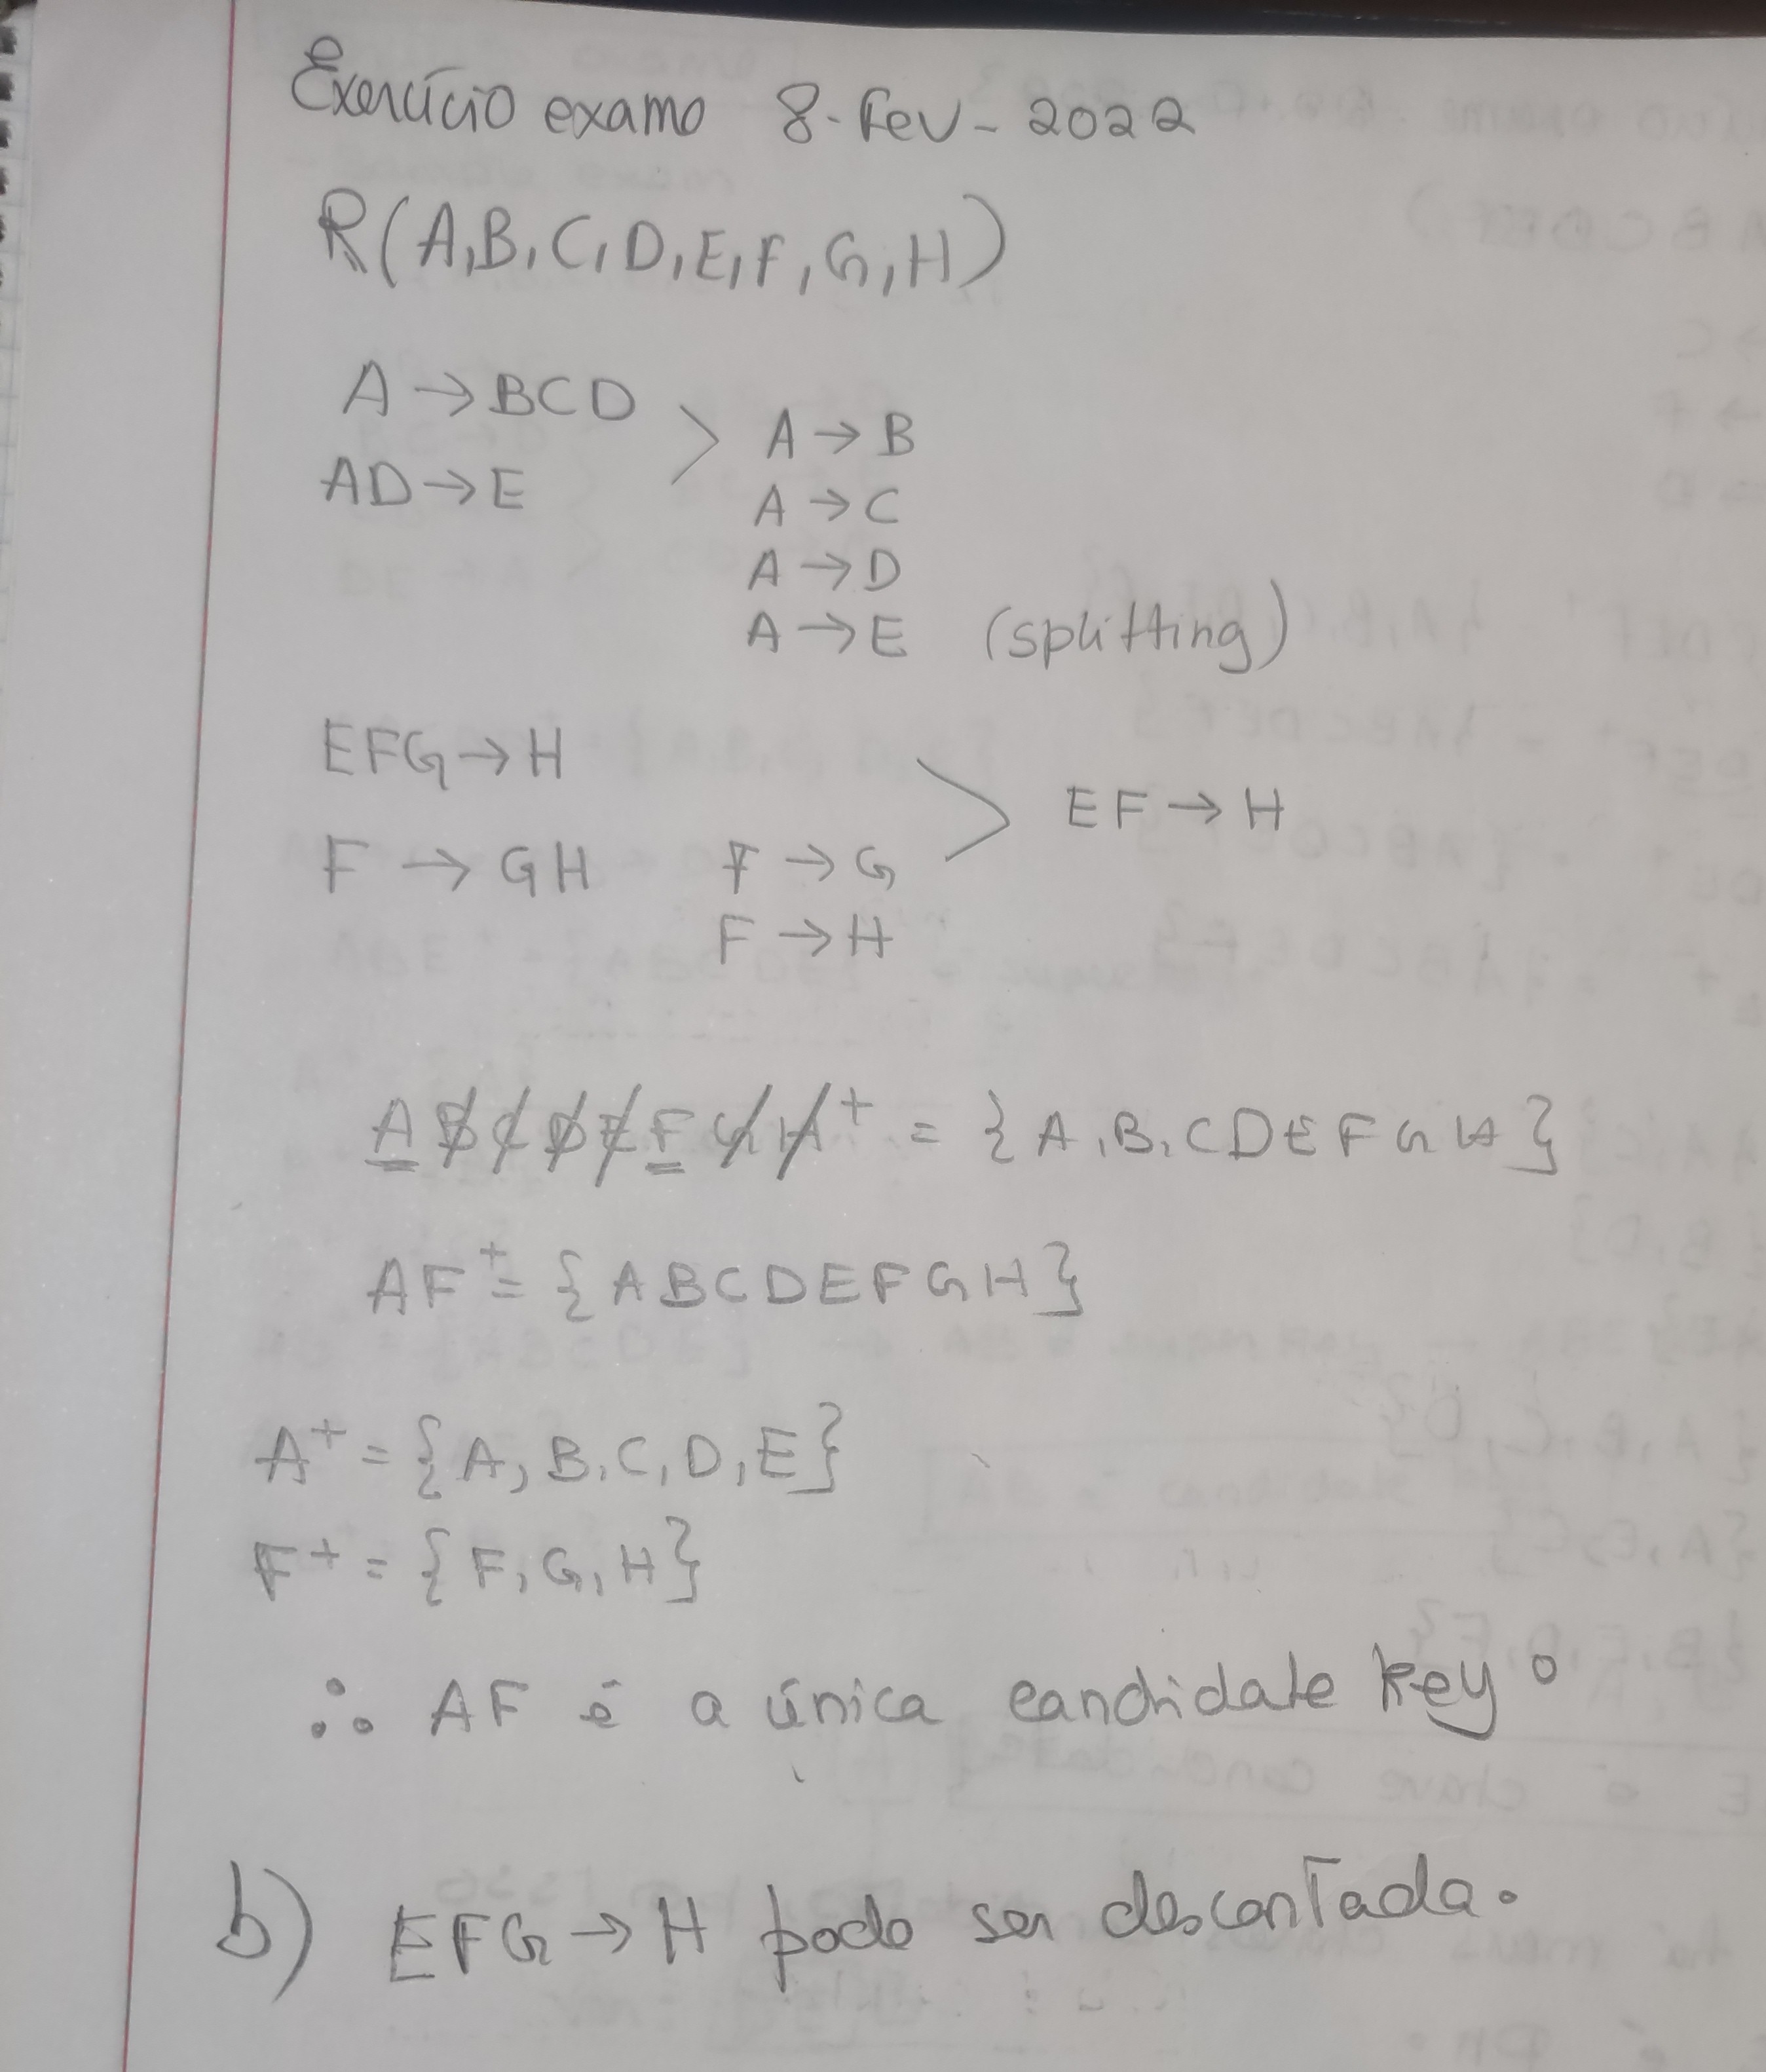 Exercício exame 8-Fev-2022
R(A,B,C,D,E,F,G,H)
A → BCD
A → B
AD → E
A → C
A → D
A → E (splitting)
EFG → H
EF → H
F → GH F → G
F → H
ABCDEFGH⁺ = {A,B,CDEFGH}
AF⁺ = {ABCDEFGH}
A⁺ = {A,B,C,D,E}
F⁺ = {F,G,H}
∴ AF é a única candidate key.
b) EFG → H pode ser descartada.